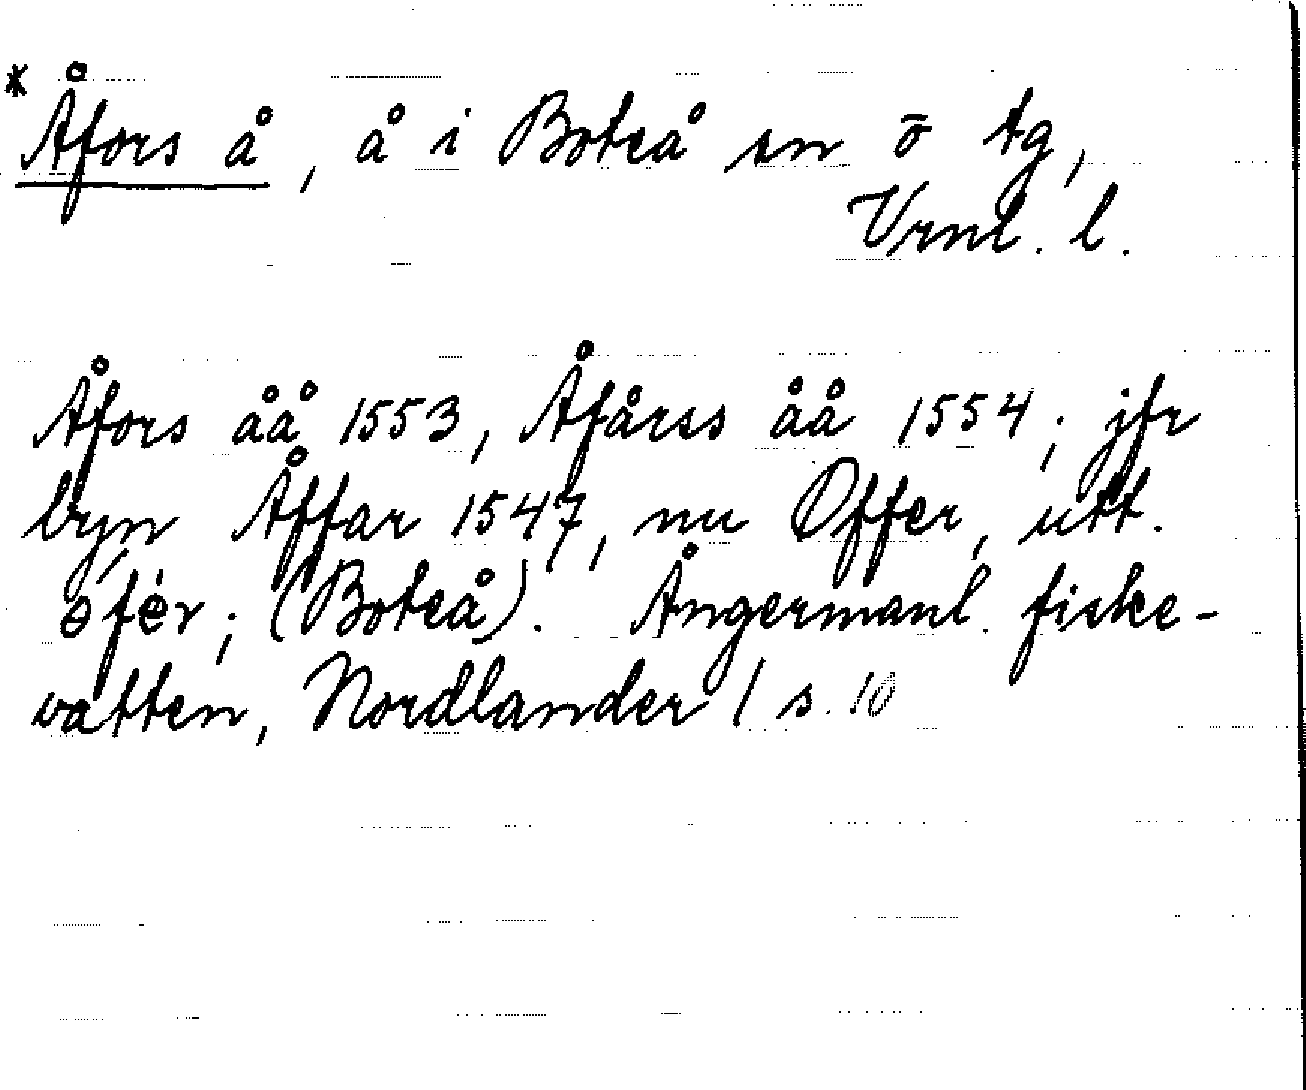 * Åfors å, å i Boteå sn ö tg,
Vrnl. l.
Åfors åå 1553, Åfårss åå 1554; jfr
byn Åffar 1547, nu Offer, utt.
ófèr; (Boteå). Ångermanl. fiske-
vatten, Nordlander 1 s. 10